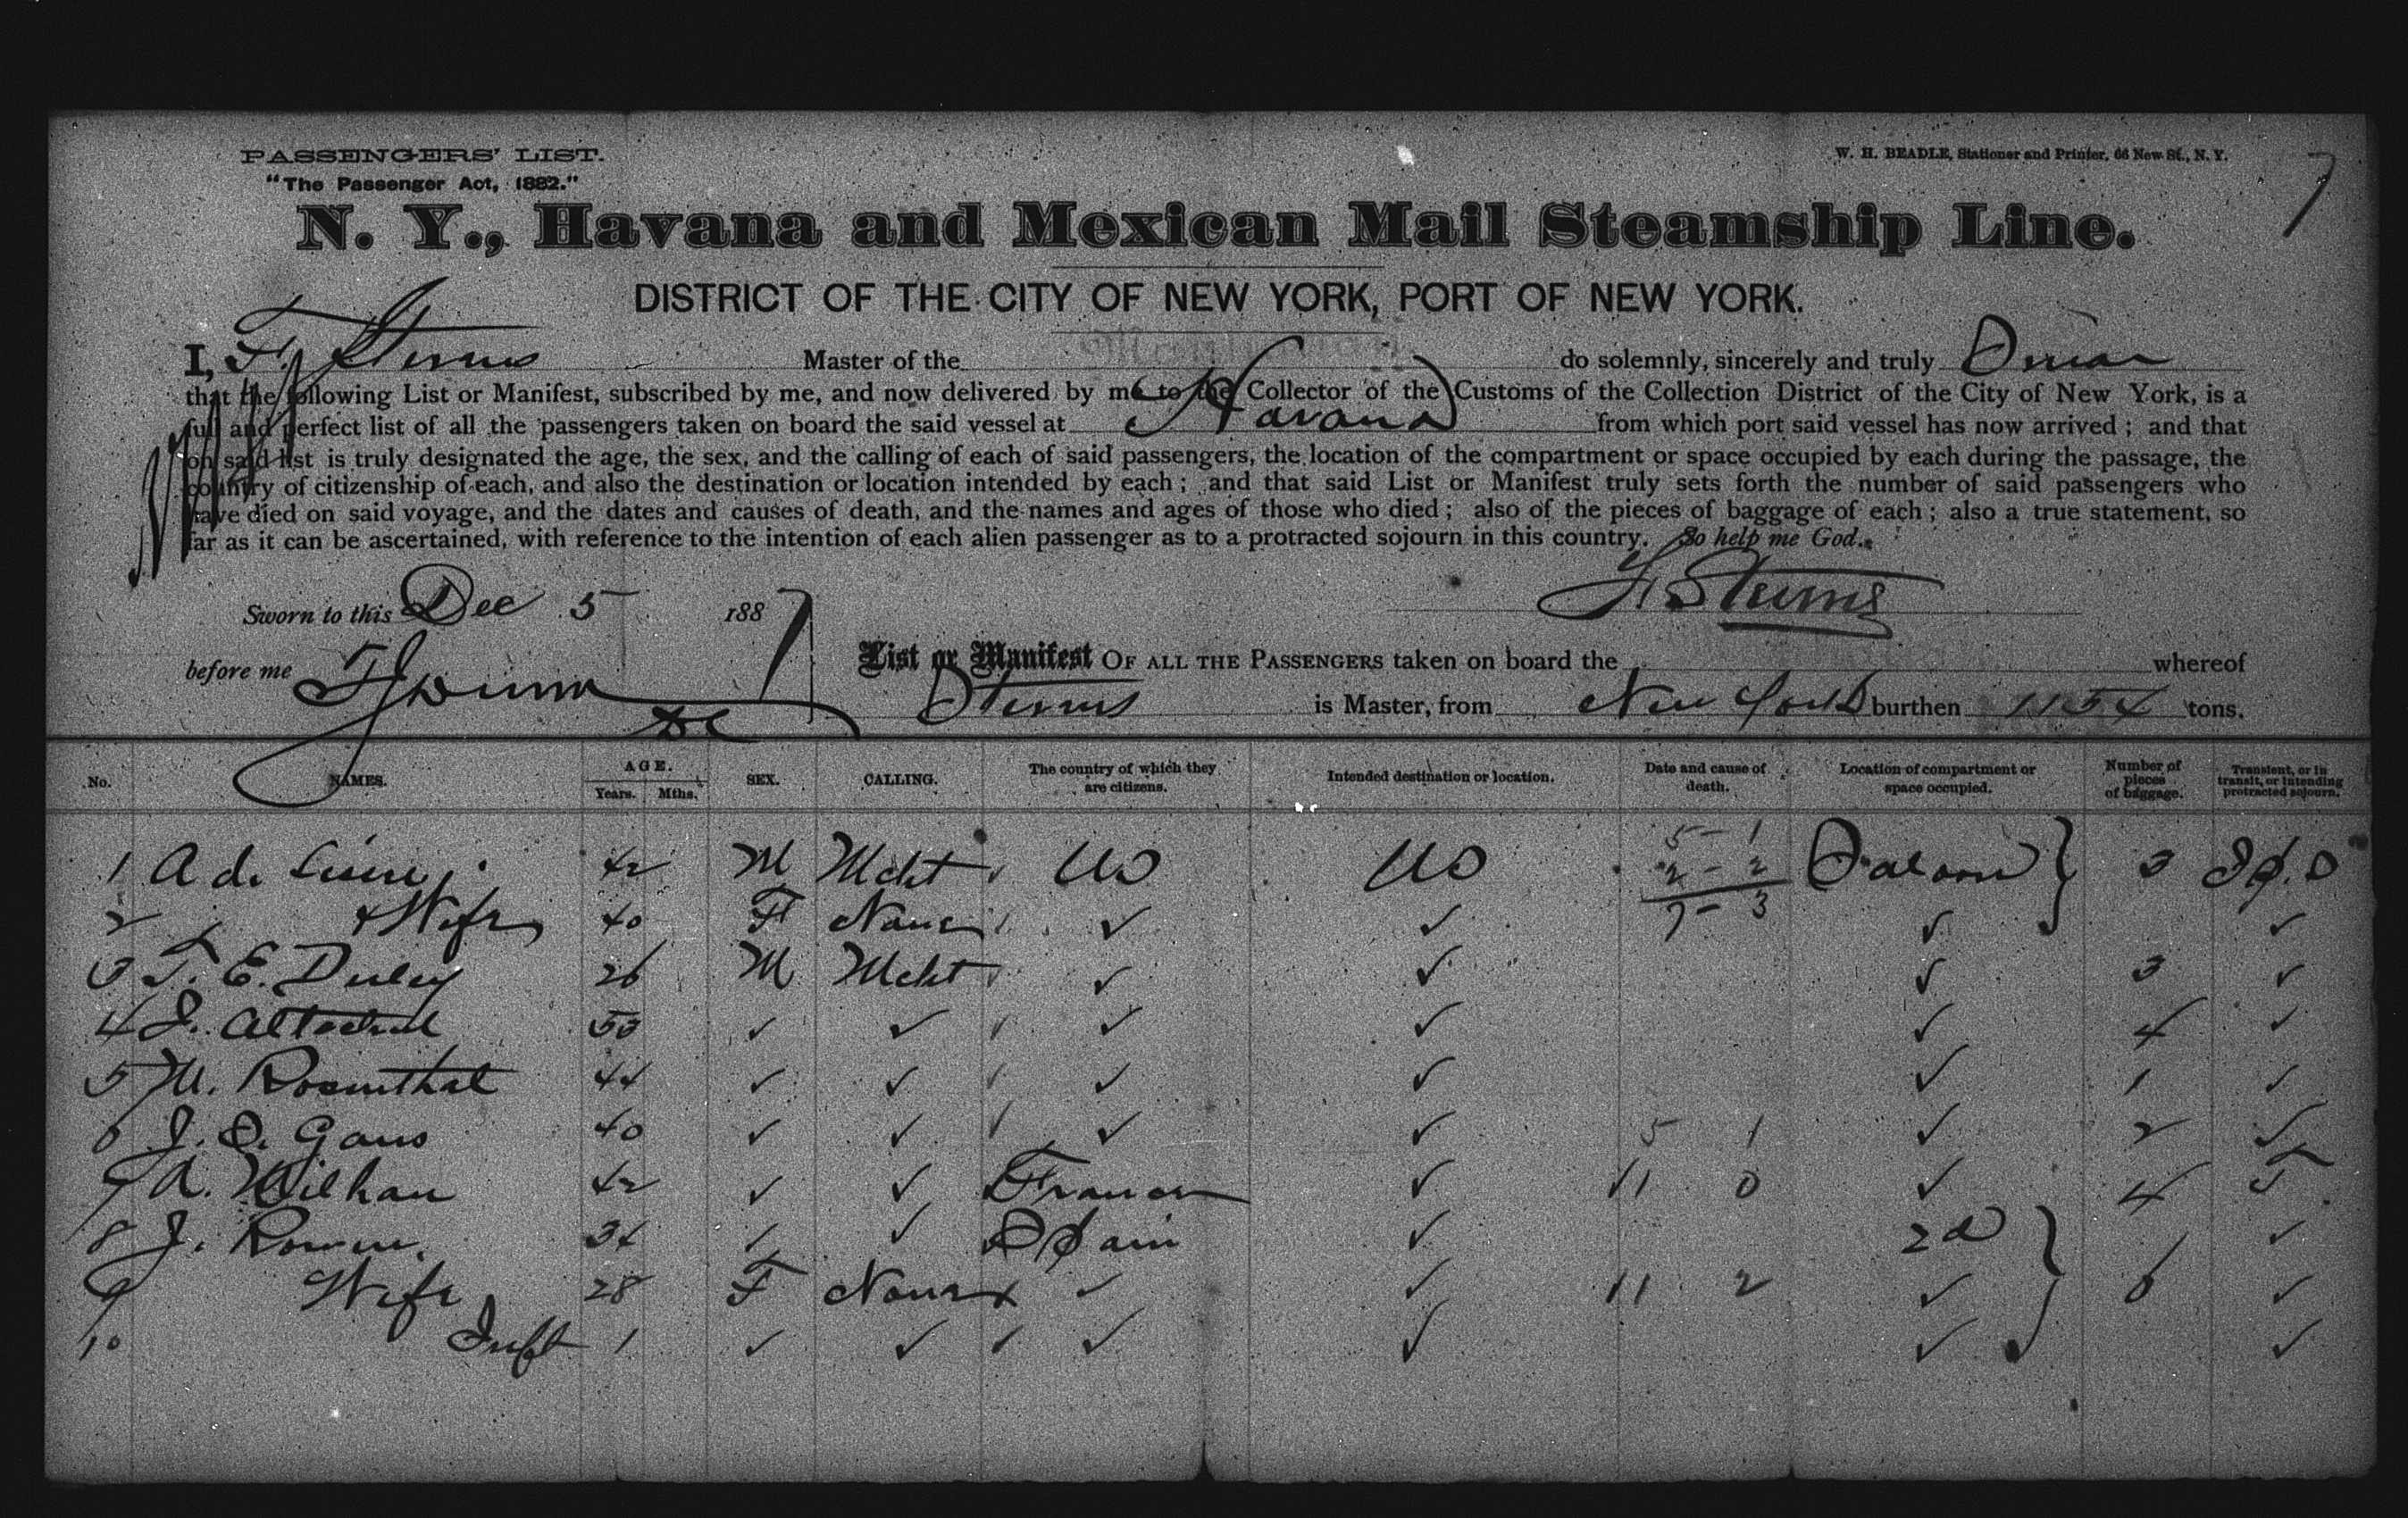 PASSENGERS' LIST.
"The Passenger Act, 1882."
W. H. BEADLE, Stationer and Printer, 66 New St., N. Y.
7
N. Y., Havana and Mexican Mail Steamship Line.
DISTRICT OF THE CITY OF NEW YORK, PORT OF NEW YORK.
I, F. Stevens Master of the do solemnly, sincerely and truly Swear
that the following List or Manifest, subscribed by me, and now delivered by me to the Collector of the Customs of the Collection District of the City of New York, is a
full and perfect list of all the passengers taken on board the said vessel at Havana from which port said vessel has now arrived; and that
on said list is truly designated the age, the sex, and the calling of each of said passengers, the location of the compartment or space occupied by each during the passage, the
country of citizenship of each, and also the destination or location intended by each; and that said List or Manifest truly sets forth the number of said passengers who
have died on said voyage, and the dates and causes of death, and the names and ages of those who died; also of the pieces of baggage of each; also a true statement, so
far as it can be ascertained, with reference to the intention of each alien passenger as to a protracted sojourn in this country. So help me God.
F. Stevens
Sworn to this Dec 5 1887
before me
DC
List or Manifest OF ALL THE PASSENGERS taken on board the whereof
Stevens is Master, from New York burthen 1154 tons.
No. NAMES. AGE. Years. Mths. SEX. CALLING. The country of which they are citizens. Intended destination or location. Date and cause of death. Location of compartment or space occupied. Number of pieces of baggage. Transient, or in transit, or intending protracted sojourn.
1 A de 42 M Mcht US US 5 - 1 2 - 2 7 - 3 Saloon 3
2 & Wife 40 F None ✓ ✓ ✓ ✓
3 T. E. Duley 26 M Mcht ✓ ✓ ✓ 3 ✓
4 J. 53 ✓ ✓ ✓ ✓ ✓ 4 ✓
5 M. Rosenthal 44 ✓ ✓ ✓ ✓ ✓ 1 ✓
6 J. S. Gans 40 ✓ ✓ ✓ ✓ 5 1 ✓ 2 ✓
7 A. Milhau 42 ✓ ✓ France ✓ 11 0 ✓ 4 T
8 J. 34 ✓ ✓ Spain ✓ 2d ✓
9 Wife 28 F None ✓ ✓ 11 2 ✓ 6 ✓
10 Inft 1 ✓ ✓ ✓ ✓ ✓ ✓